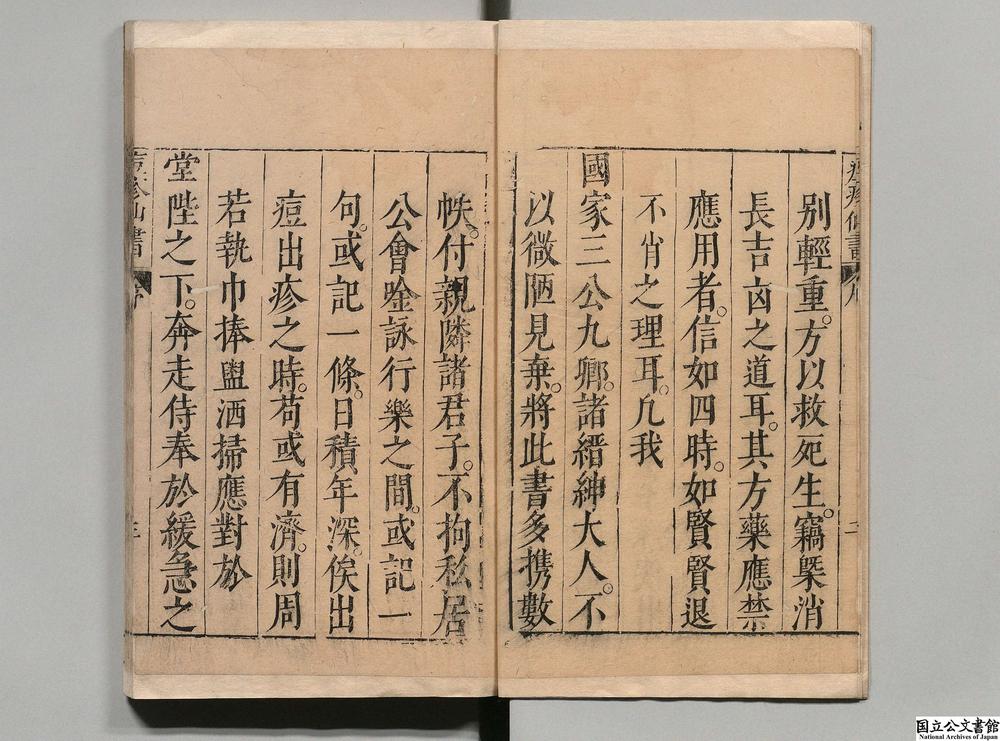 別輕重。方以救死生。竊槩消
長吉凶之道耳。其方藥應禁
應用者。信如四時。如賢賢退
不肖之理耳。凢我
國家三公九卿。諸縉紳大人。不
以微陋見棄。將此書多携數
帙。付親隣諸君子。不拘私居
公會唫詠行樂之間。或記一
句。或記一條。日積年深。俟出
痘出疹之時。苟或有濟。則周
若執巾捧盥洒掃應對於
堂陛之下。奔走侍奉於緩急之
国立公文書館
National Archives of Japan